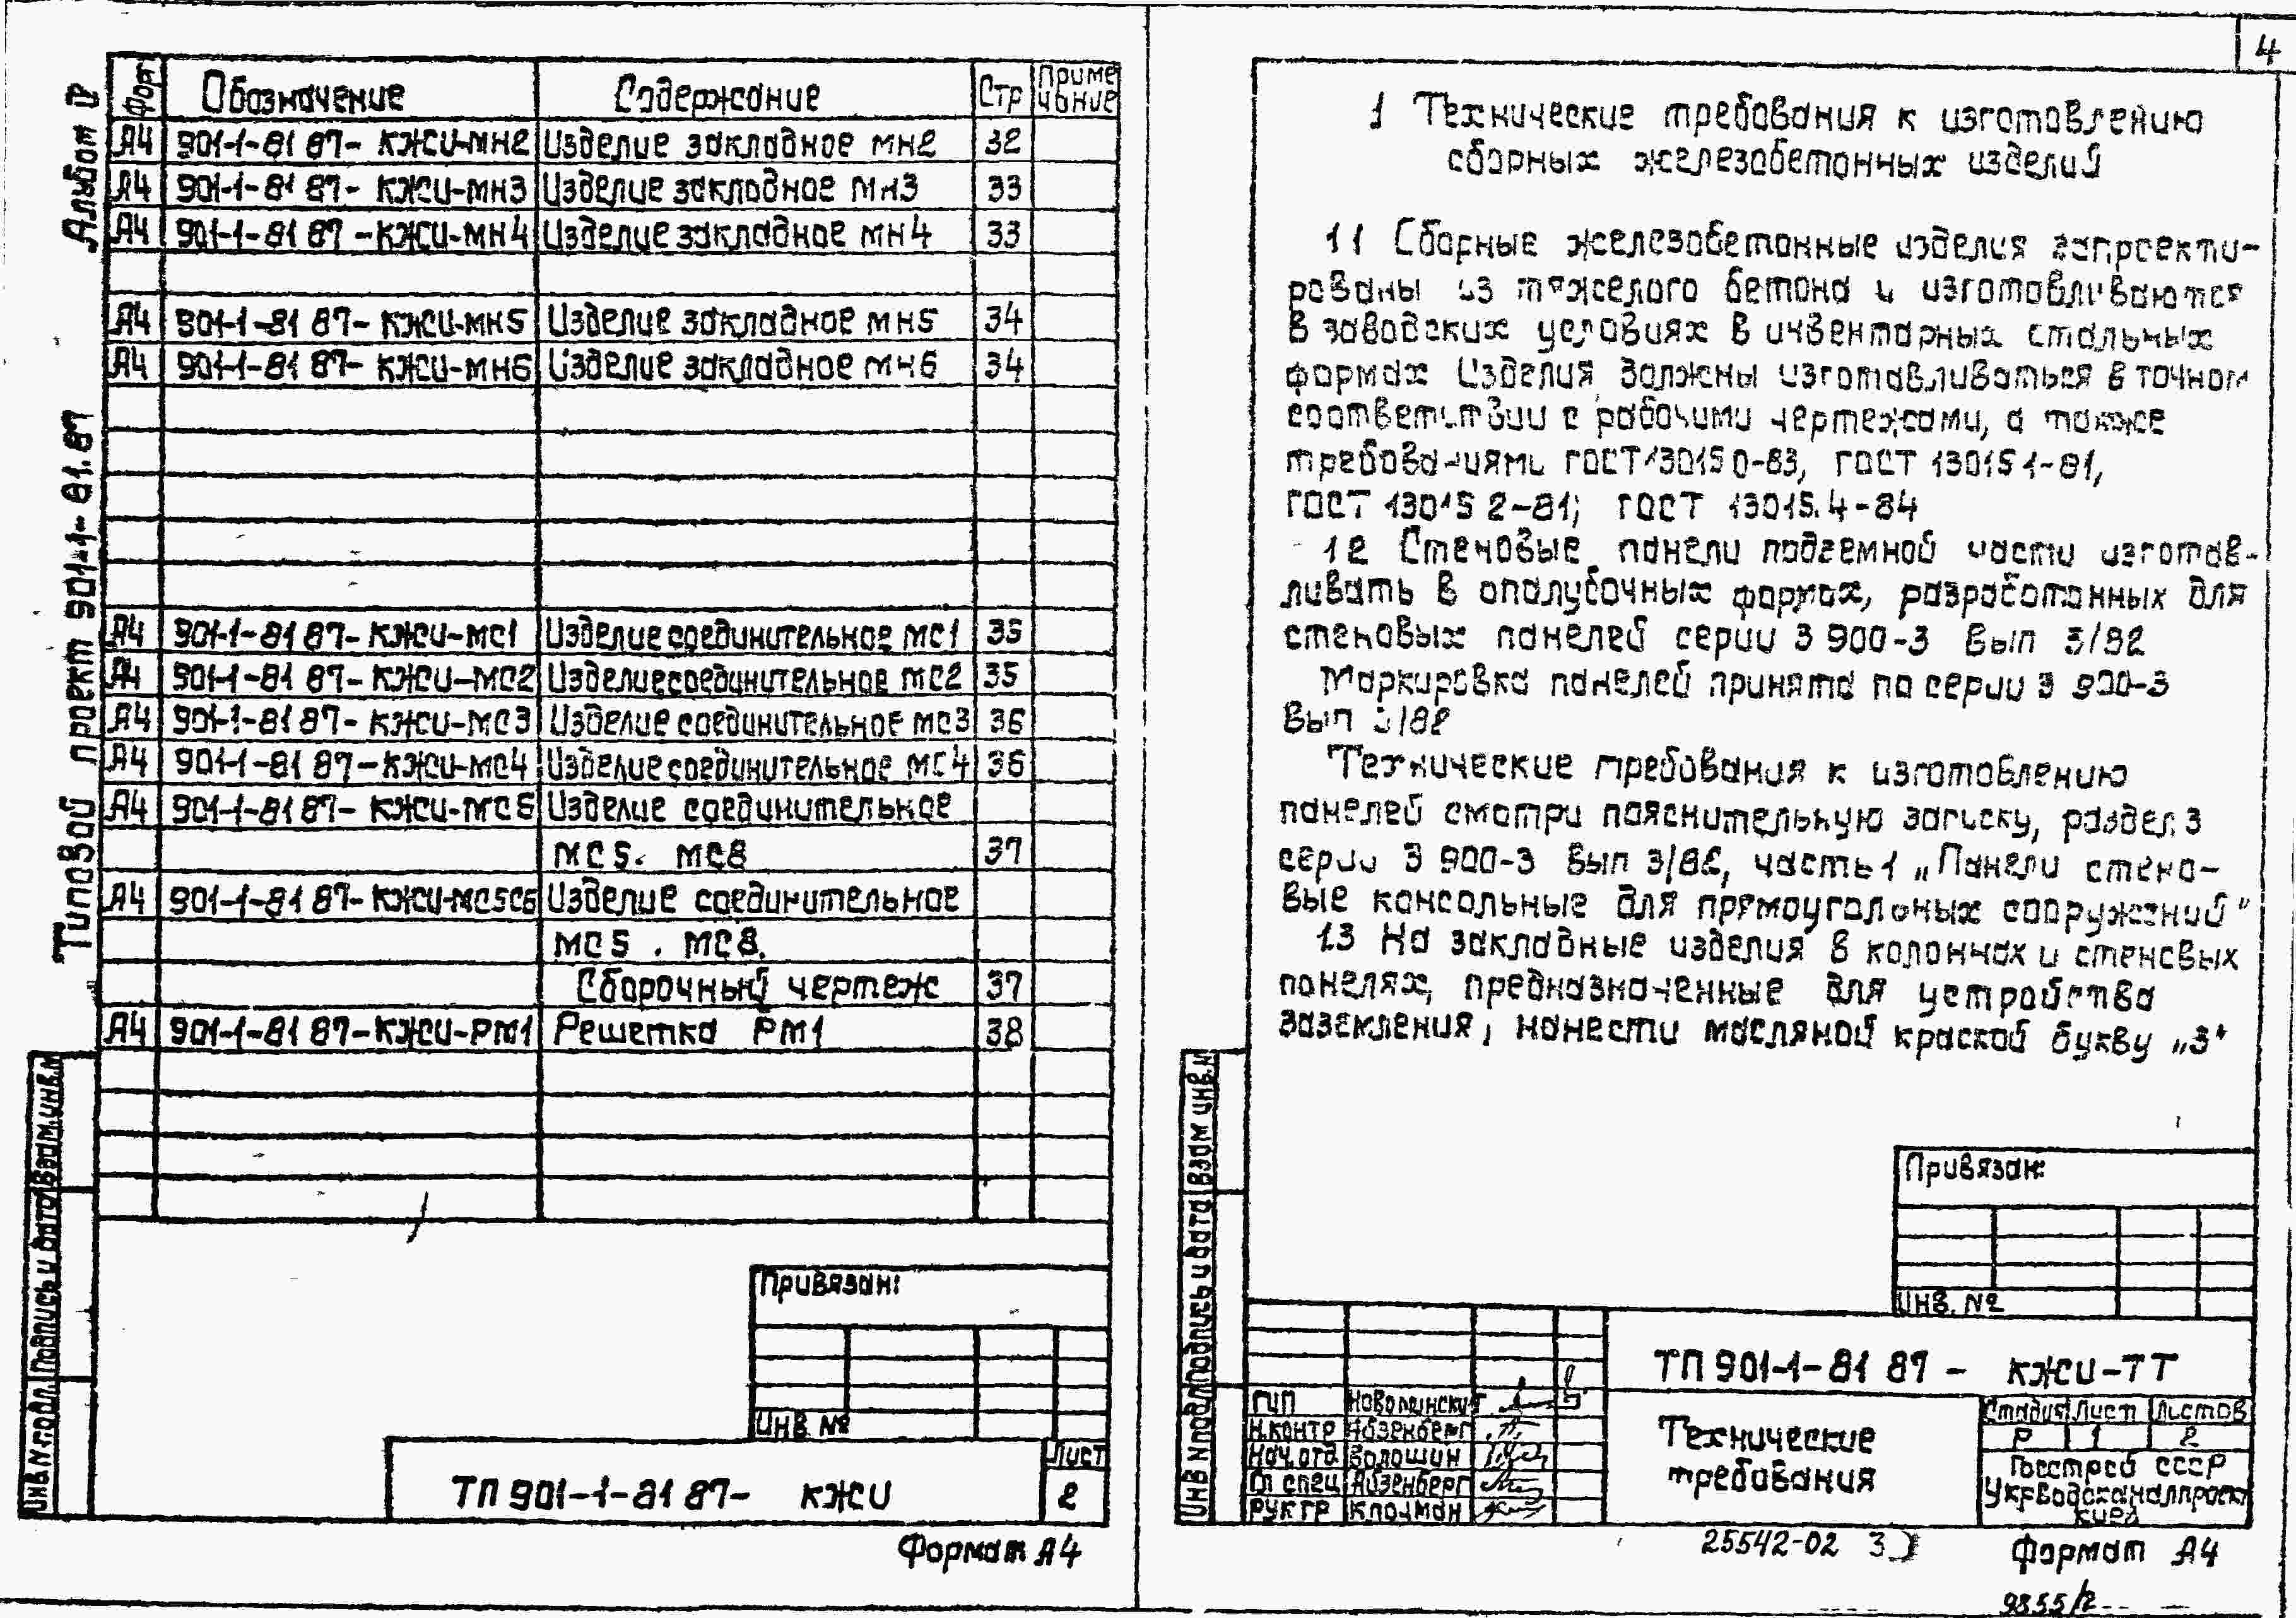 4
Альбом IV
Типовой проект 901-1-81.87
Фор Обозначение Содержание Стр Приме
чание
А4 901-1-81 87- КЖИ-МН2 Изделие закладное МН2 32
А4 901-1-81 87- КЖИ-МН3 Изделие закладное МН3 33
А4 901-1-81 87 -КЖИ-МН4 Изделие закладное МН4 33
А4 901-1-81 87- КЖИ-МН5 Изделие закладное МН5 34
А4 901-1-81 87- КЖИ-МН6 Изделие закладное МН6 34
А4 901-1-81 87- КЖИ-МС1 Изделие соединительное МС1 35
А4 901-1-81 87- КЖИ-МС2 Изделие соединительное МС2 35
А4 901-1-81 87- КЖИ-МС3 Изделие соединительное МС3 36
А4 901-1-81 87-КЖИ-МС4 Изделие соединительное МС4 36
А4 901-1-81 87- КЖИ-МС5 Изделие соединительное
МС5. МС8 37
А4 901-1-81 87- КЖИ-МС5СБ Изделие соединительное
МС5 . МС8.
Сборочный чертеж 37
А4 901-1-81 87-КЖИ-РМ1 Решетка РМ1 38
Привязан:
Инв. №
ТП 901-1-81 87- КЖИ
Лист
2
Формат А4
Инв N подл. Подпись и дата Взам. инв. N
1 Технические требования к изготовлению
сборных железобетонных изделий
1 1 Сборные железобетонные изделия запроекти-
рованы из тяжелого бетона и изготовливаются
в заводских условиях в инвентарных стальных
формах Изделия должны изготавливаться в точном
соответствии с рабочими чертежами, а также
требованиями ГОСТ 13015 0-83, ГОСТ 13015 1-81,
ГОСТ 13015 2-81; ГОСТ 13015.4-84
1 2 Стеновые панели подземной части изготав-
ливать в опалубочных формах, разработанных для
стеновых панелей серии 3 900-3 вып 3/82
Маркировка панелей принята по серии 3 900-3
вып 3/82
Технические требования к изготовлению
панелей смотри пояснительную записку, раздел 3
серии 3 900-3 вып 3/82, часть 1 „Панели стено-
вые консольные для прямоугольных сооружений"
1.3 На закладные изделия в колоннах и стеновых
панелях, предназначенные для устройства
заземления, нанести масляной краской букву „З"
Привязан:
Инв. №
ТП 901-1-81 87 - КЖИ-ТТ
ГИП Новолинский
Н.контр Айзенберг
Нач. отд Волошин
Гл спец Айзенберг
Рук гр Клоцман
Технические
требования
Стадия Лист Листов
Р 1 2
Госстрой СССР
Укрводоканалпроект
Киев
Инв N подл Подпись и дата Взам инв. N
25542-02 3
Формат А4
9855/2